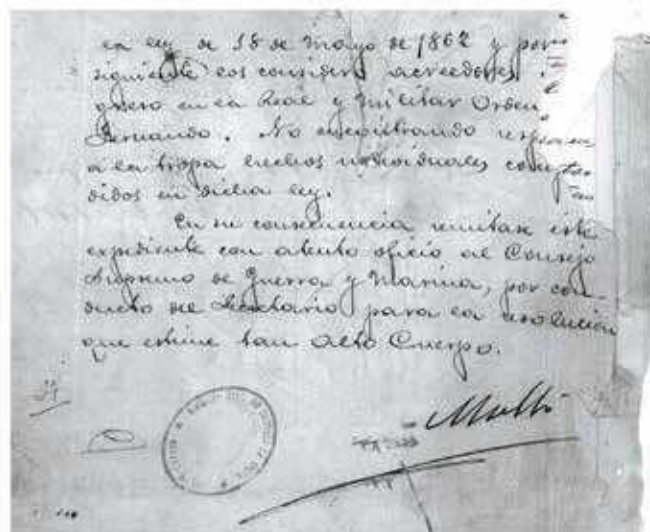 la ley de 18 de Mayo de 1862 y por
siguiente los considera acreedores
greso en la Real y Militar Orden
Fernando. No encontrando respecto
a la tropa hechos individuales compren
didos en dicha ley.
En su consecuencia remitase este
expediente con atento oficio al Consejo
Supremo de Guerra y Marina, por con-
ducto del Secretario para la resolución
que estime tan Alto Cuerpo.